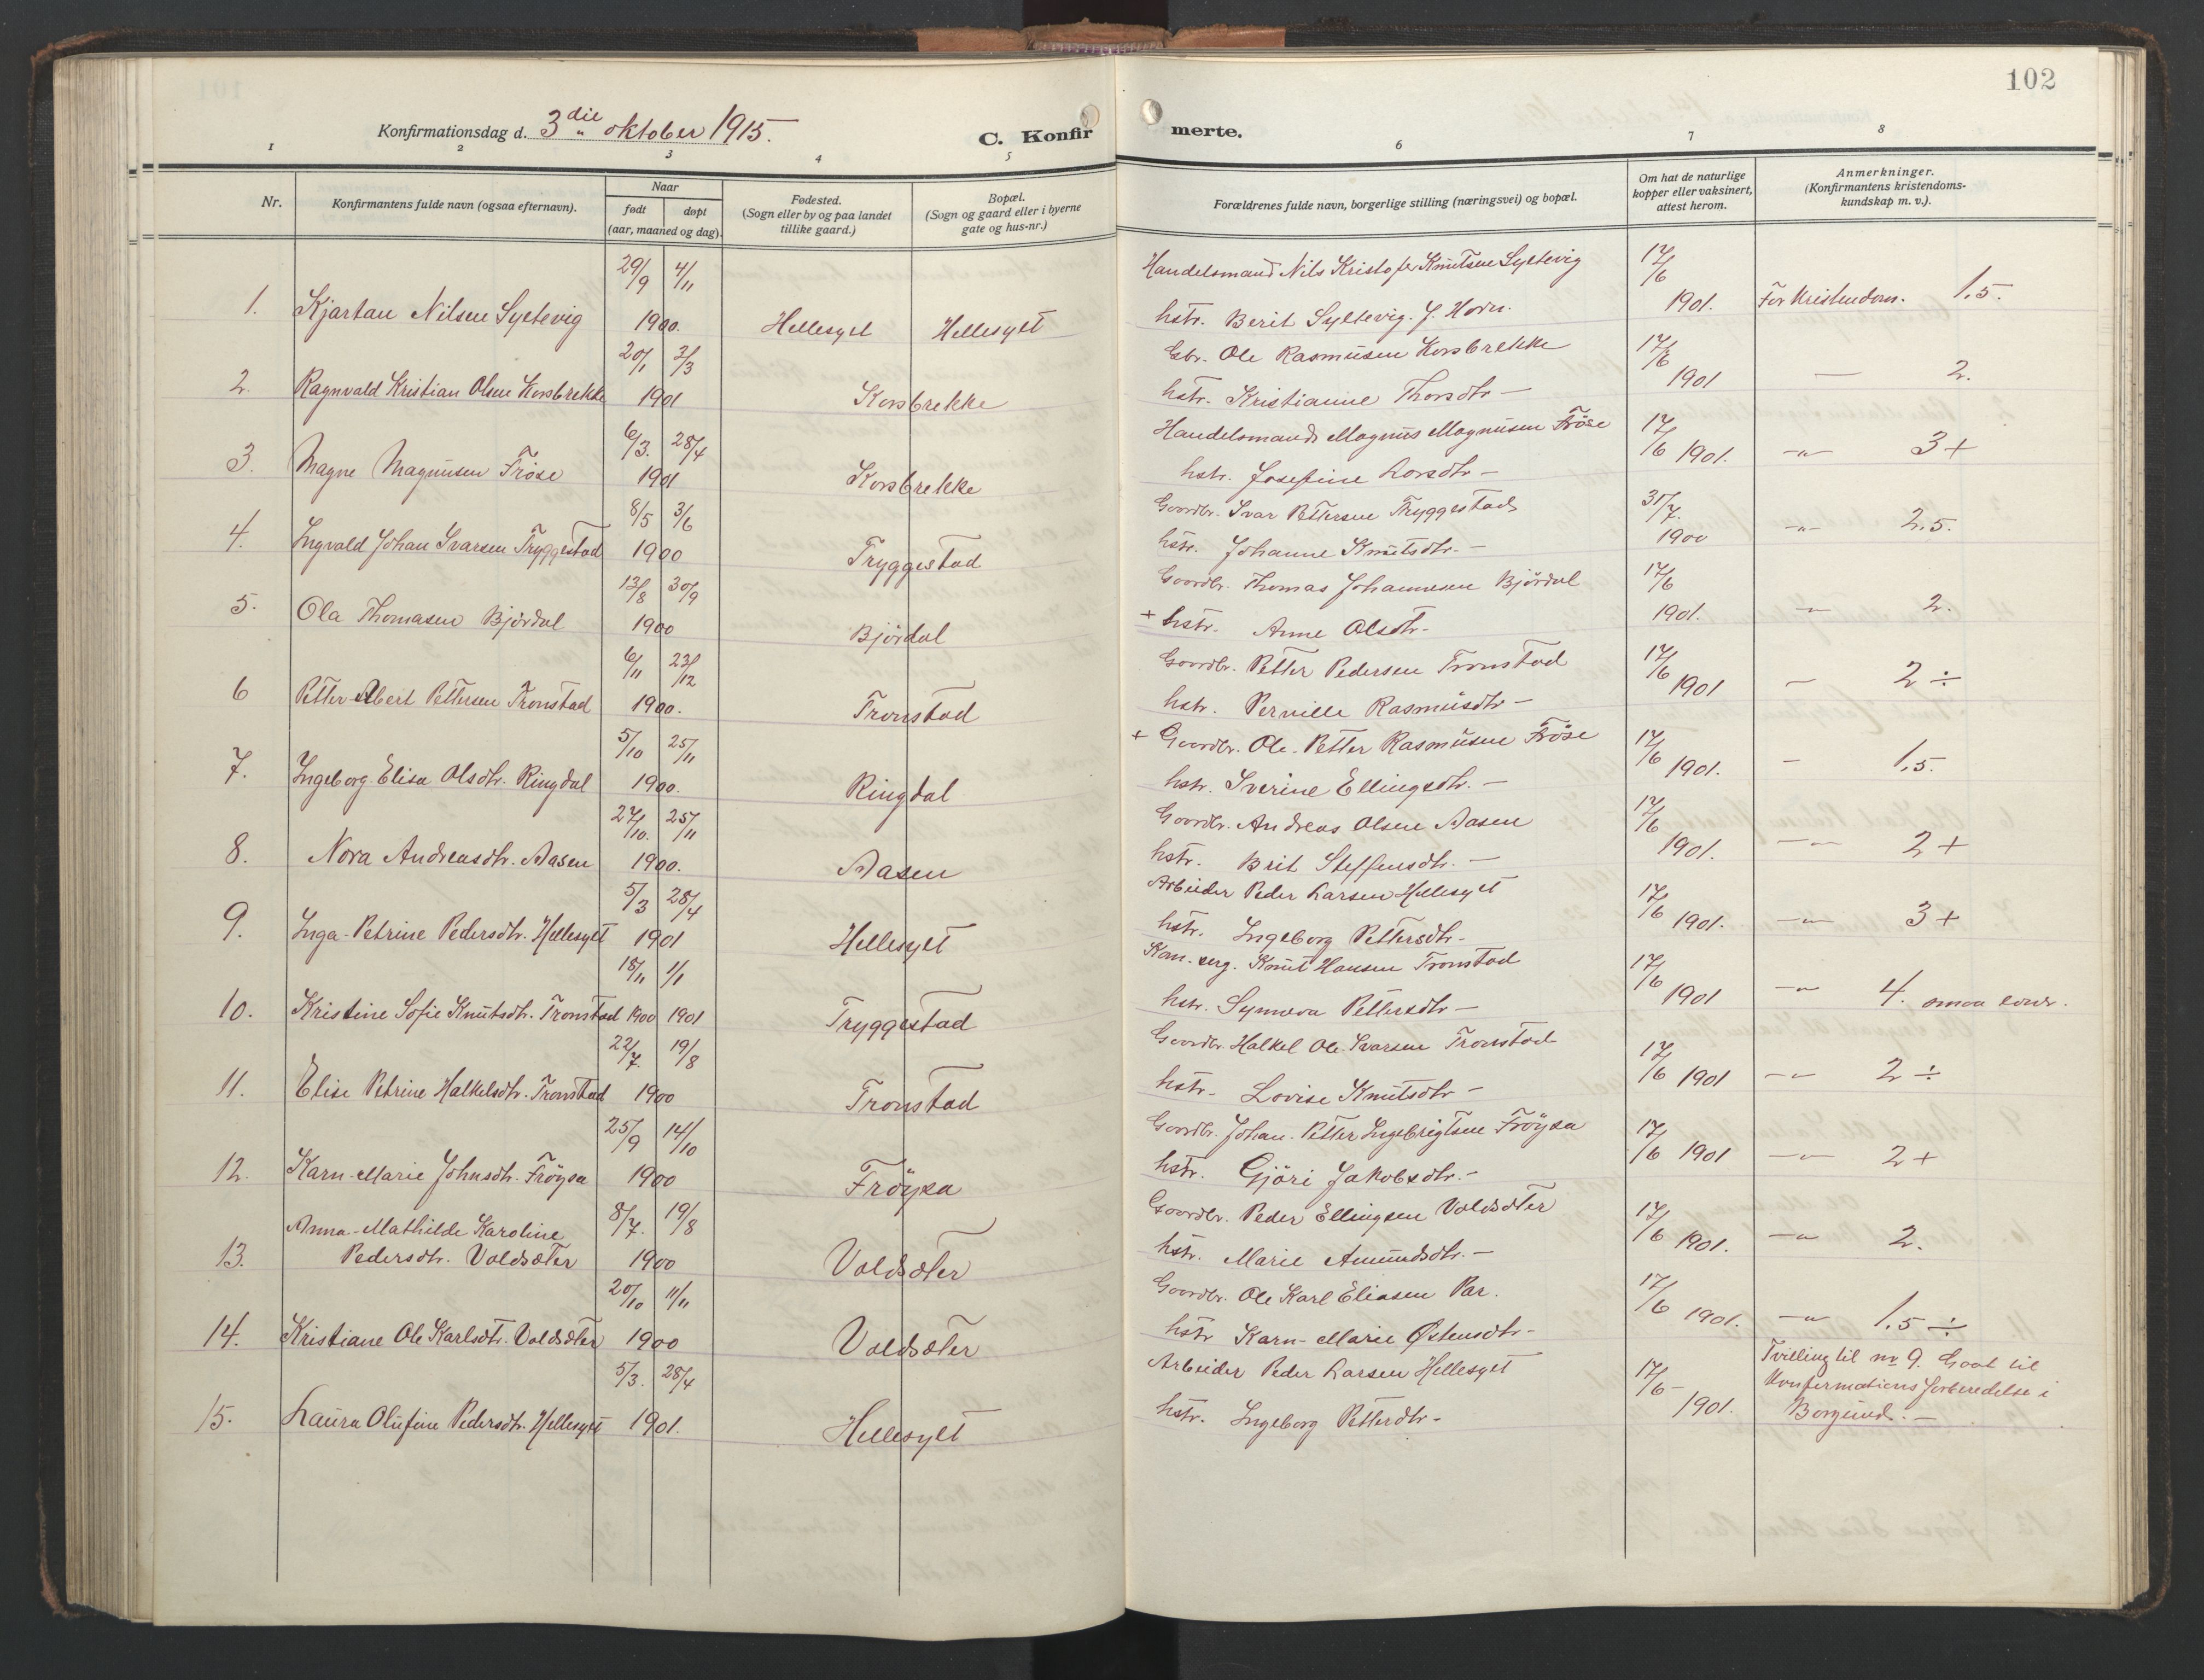 102
Konfirmationsdag d. 3die oktober 1915.
C. Konfirmerte.
1 2 3 4 5 6 7 8
Nr.
Konfirmantens fulde navn (ogsaa efternavn).
Naar
født
døpt
(aar, maaned og dag).
Fødested.
(Sogn eller by og paa landet
tillike gaard.)
Bopæl.
(Sogn og gaard eller i byerne
gate og hus-nr.)
Forældrenes fulde navn, borgerlige stilling (næringsvei) og bopæl.
Om hat de naturlige
kopper eller vaksinert,
attest herom.
Anmerkninger.
(Konfirmantens kristendoms-
kundskap m. v.).
29/9 4/11 Handelsmand Nils Kristofer Knutsen Syltevig 17/6
1. Kjartan Nilsen Syltevig 1900. Hellesylt Hellesylt hstr. Berit Syltevig. f. Horn. 1901. For Kristendom. 1,5.
20/1 3/3 Gbr. Ole Rasmusen Korsbrekke 17/6
2. Ragnvald Kristian Olsen Korsbrekke 1901 Korsbrekke hstr. Kristianne Thorsdtr - 1901 — 2.
6/3. 28/4 Handelsmand Magnus Magnusen Frøse 17/6
3. Magne Magnusen Frøse 1901 Korsbrekke hstr. Josefine Larsdtr - 1901. -"- 3+
8/5 3/6 Gaardbr. Ivar Pettersen Tryggestad 31/7.
4. Ingvald Johan Ivarsen Tryggestad 1900 Tryggestad hstr. Johanne Knutsdtr. - 1900 -"- 2,5.
13/8 30/9 Gaardbr. Thomas Johannesen Bjørdal 17/6
5. Ola Thomasen Bjørdal 1900 Bjørdal + hstr. Anne Olsdtr. 1901. -"- 2.
6/11 23/12 Gaardbr. Petter Pedersen Tronstad 17/6
6 Petter Albert Pettersen Tronstad 1900. Tronstad hstr. Pernille Rasmusdtr - 1901 - 2 ÷
5/10 25/11 + Gaardbr. Ole-Petter Rasmusen Frøse 17/6
7. Ingeborg-Elisa Olsdtr. Ringdal 1900. Ringdal hstr. Iverine Ellingsdtr. - 1901. - 1,5.
27/10. 25/11 Gaardbr. Andreas Olsen Aasen 17/6
8. Nora Andreasdtr. Aasen 1900. Aasen hstr. Brit Steffensdtr. - 1901. -"- 2+
5/3 28/4 Arbeider Peder Larsen Hellesylt 17/6
9. Inga-Petrine Pedersdtr. Hellesylt 1901 Hellesylt hstr. Ingeborg Pettersdtr - 1901. -"- 3+
18/11 1/1 Knut Hansen Tronstad 17/6
10. Kristine Sofie Knutsdtr. Tronstad 1900 1901 Tryggestad hstr. Synneva Pettersdtr - 1901 -"- 4. smaa evner.
22/7. 19/8 Gaardbr. Halkel Ole Ivarsen Tronstad 17/6
11. Elise Petrine Halkelsdtr. Tronstad 1900 Tronstad hstr. Lovise Knutsdtr - 1901 -"- 2 ÷
25/9 14/10 Gaardbr. Johan-Petter Ingebrigtsen Frøysa 17/6
12. Karn-Marie Johnsdtr. Frøysa 1900 Frøysa hstr. Gjøri Jakobsdtr. - 1901 -"- 2+
Anna-Mathilde Karoline 8/7. 19/8 Gaardbr. Peder Ellingsen Voldsæter 17/6
13. Pedersdtr. Voldsæter 1900 Voldsæter hstr. Marie Amundsdtr. - 1901. -"- 2.
20/10 11/11 Gaardbr. Ole Karl Eliasen Par. 17/6
14. Kristiane Ole Karlsdtr. Voldsæter 1900 Voldsæter hstr Karn-Marie Østensdtr - 1901. -"- 1,5 ÷
5/3. 28/4 Arbeider Peder Larsen Hellesylt 17/6 - Tvilling til nr 9. Gaat til
Konfirmationsforberedelse i
15. Laura Olufine Pedersdtr. Hellesylt 1901. Hellesylt hstr. Ingeborg Petterdtr - 1901. Borgund. -